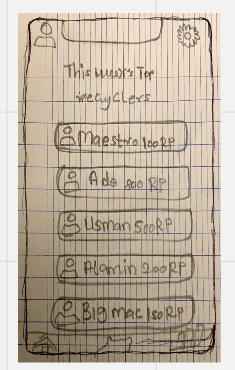 This week's Top
recyclers
Maestro 100RP
Ade 800 RP
Usman 500RP
Alamin 200RP
Big mac 150RP